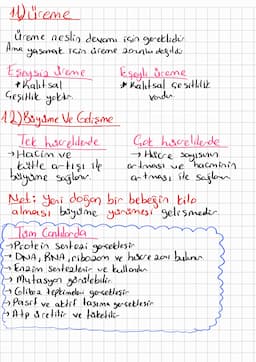 11) Üreme
Üreme neslin devamı için gereklidir
Ama yaşamak için üreme zorunlu değildir
Eşeysiz üreme
Eşeyli üreme
* Kalıtsal
Çeşitlilik yoktur.
* Kalıtsal çeşitlilik
vardır
12) Büyüme Ve Gelişme
Tek hücrelilerde
Çok hücrelilerde
→ Hacim ve
kütle artışı ile
büyüme sağlanır.
→ Hücre sayısının
artması ve hacminin
artması ile sağlanır
Not: Yeni doğan bir bebeğin kilo
alması büyüme gelişmedir
Tüm Canlılarda
→ Protein sentezi gerçekleşir
→ DNA, RNA, ribozom ve hücre zarı bulunur
→ Enzim sentezlenir ve kullanılır
→ Mutasyon görülebilir
→ Glikoz tepkimeleri gerçekleşir
→ Pasif ve aktif taşıma gerçekleşir
→ Atp üretilir ve tüketilir